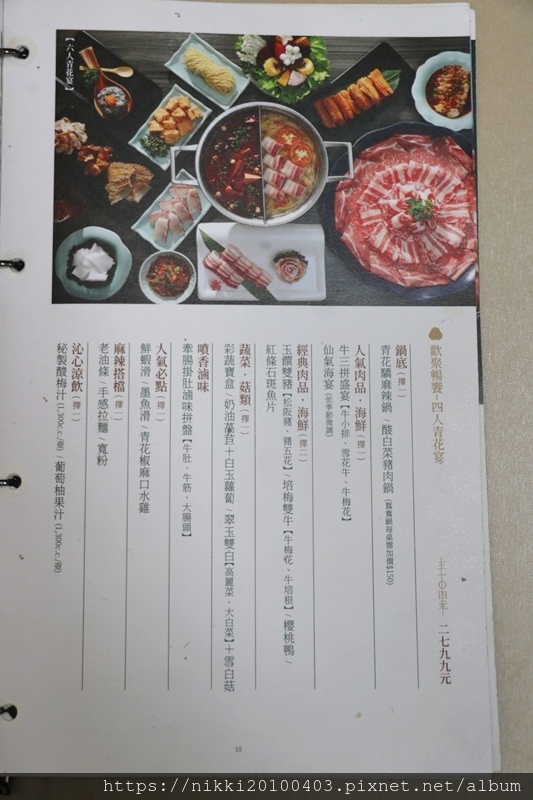 【六人青花宴】
歡聚暢饗-四人青花宴
二七九九元
鍋底(擇一)
青花驕麻辣鍋/酸白菜豬肉鍋(鴛鴦鍋每桌需加價$150)
人氣肉品·海鮮(擇一)
牛三拼盛宴【牛小排、雪花牛、牛梅花】
仙氣海宴(依季節微調)
經典肉品·海鮮(擇二)
玉饌雙豬【松阪豬、豬五花】/培梅雙牛【牛梅花、牛培根】/櫻桃鴨/
紅條石斑魚片
蔬菜·菇類(擇二)
彩蔬寶盒/奶油萵苣+白玉蘿蔔/翠玉雙白【高麗菜、大白菜】+雪白菇
噴香滷味
牽腸掛肚滷味拼盤【牛肚、牛筋、大腸頭】
人氣必點(擇一)
鮮蝦滑/墨魚滑/青花椒麻口水雞
麻辣搭檔(擇一)
老油條/手感拉麵/寬粉
沁心涼飲(擇一)
秘製酸梅汁(1,300c.c./壺)/葡萄柚果汁(1,300c.c./壺)
10
https://nikki20100403.pixnet.net/album